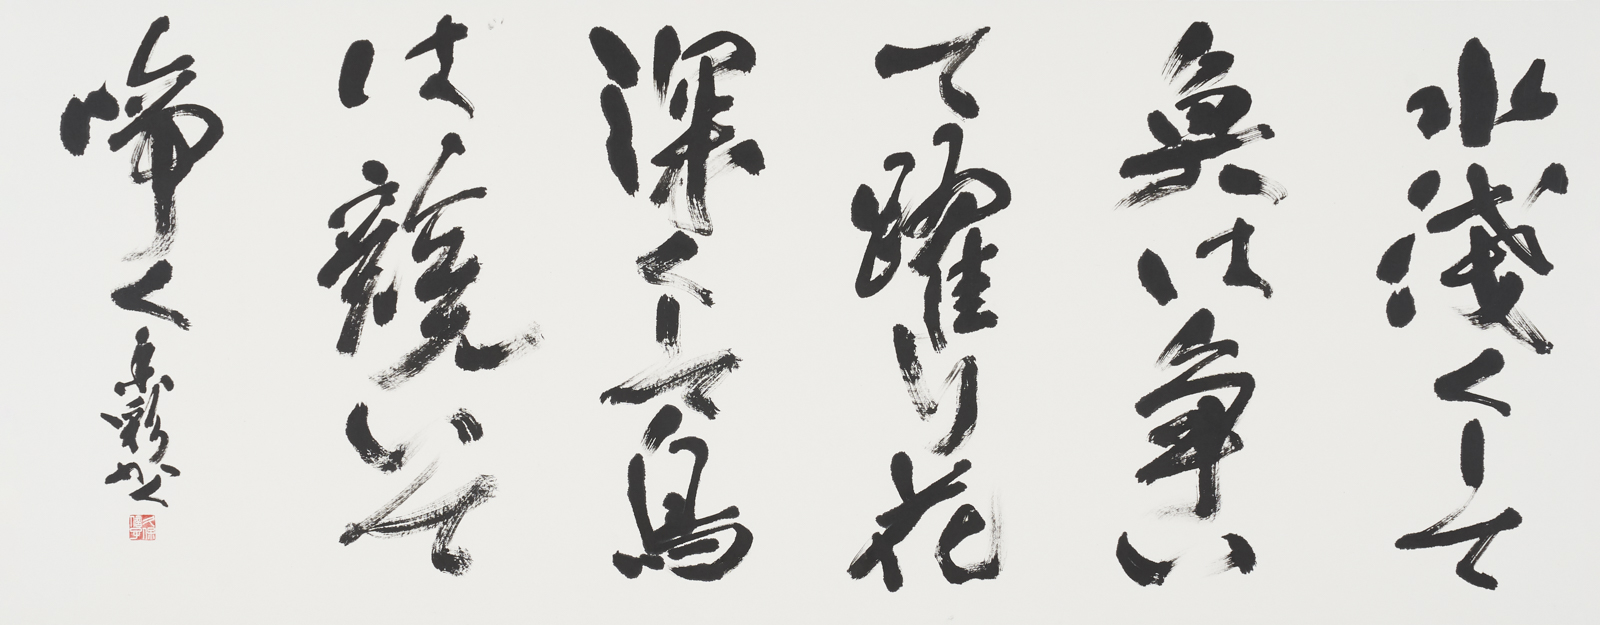 水浅くして
魚は争い
て躍り花
深くして鳥
は競いて
啼く